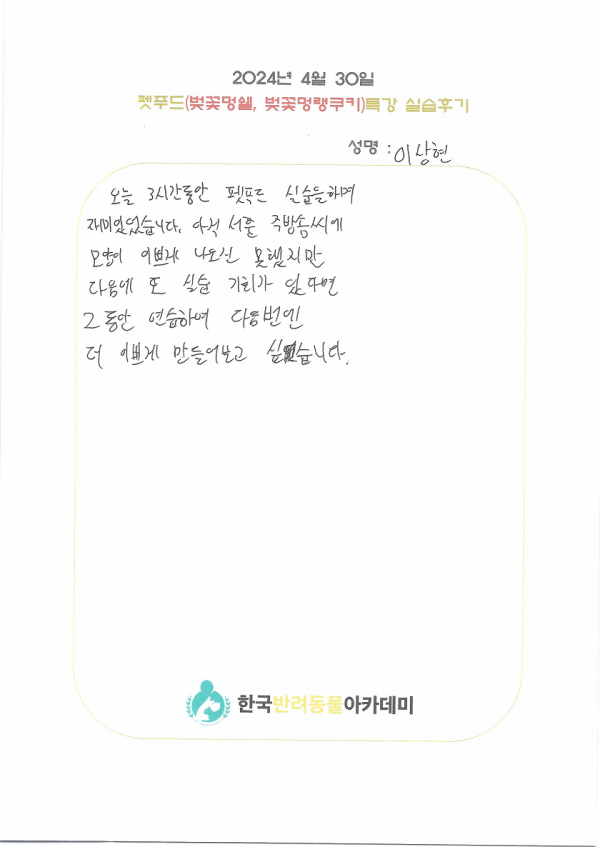 2024년 4월 30일
펫푸드(벚꽃멍쉘, 벚꽃멍랭쿠키)특강 실습후기
성명 : 이상현
오늘 3시간동안 펫푸드 실습을하며
재미있었습니다. 아직 서훈 주방솜씨에
모양이 이쁘게 나오진 못했지만
다음에 또 실습 기회가 있다면
그동안 연습하여 다음번엔
더 이쁘게 만들어보고 싶습니다.
한국반려동물아카데미